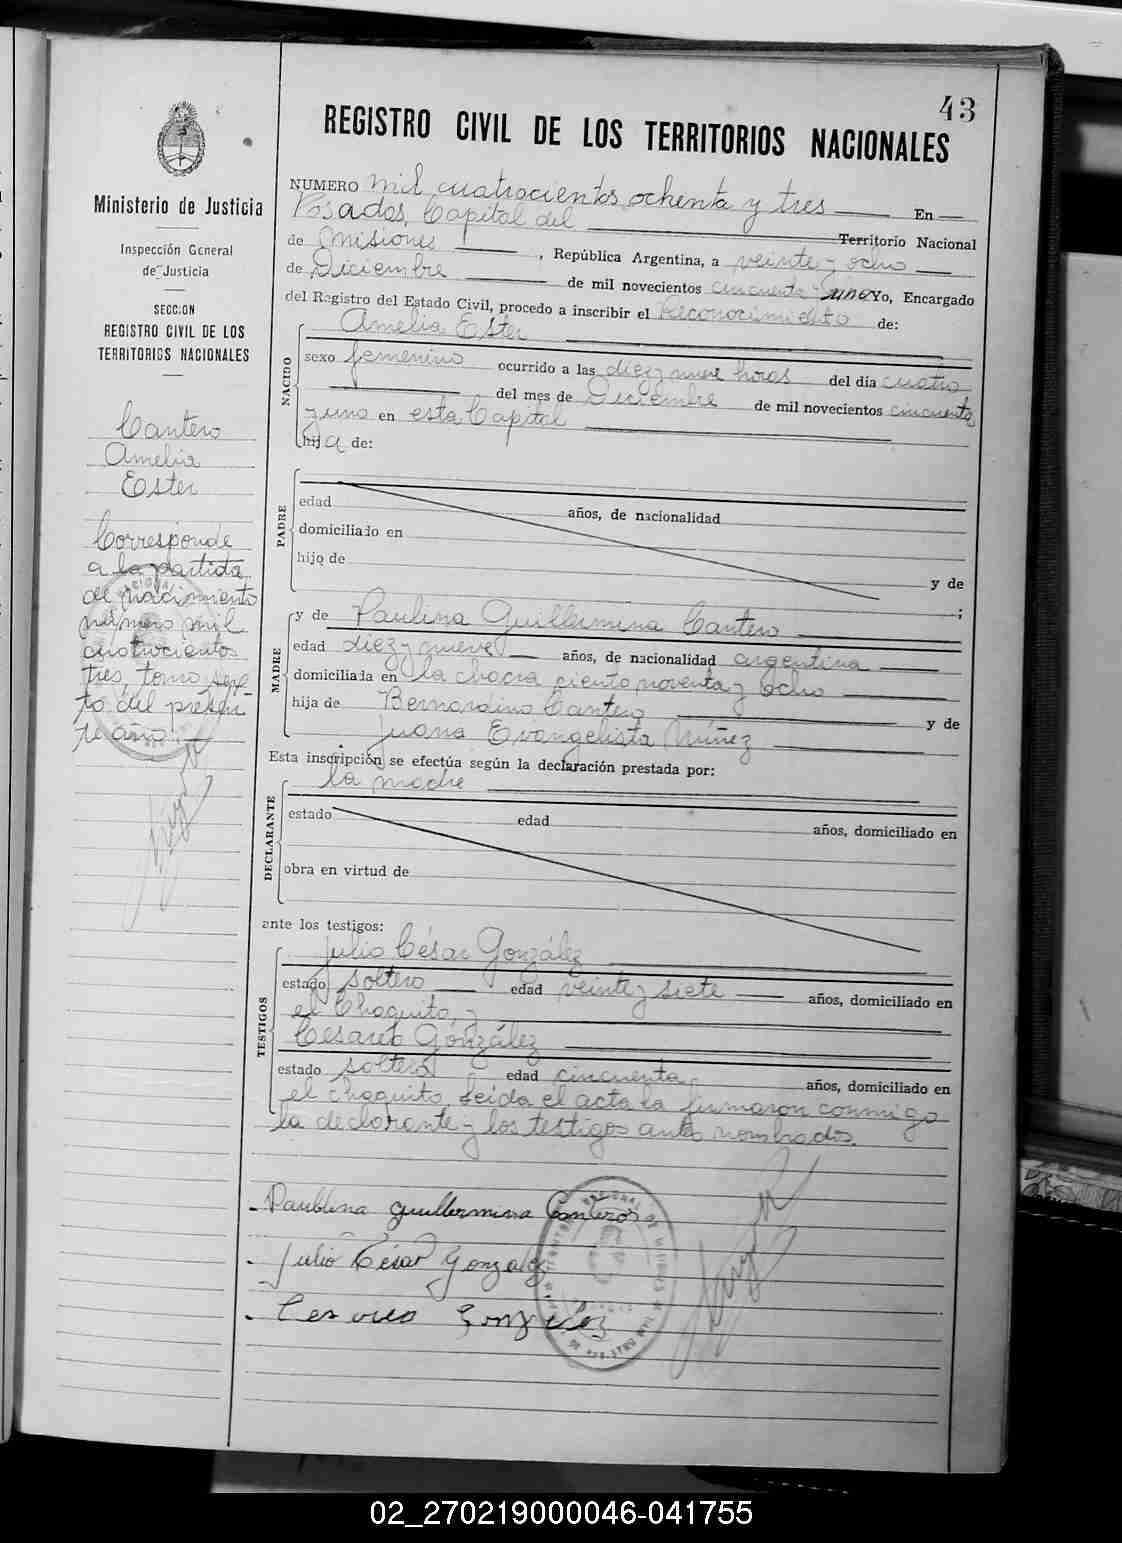 43
REGISTRO CIVIL DE LOS TERRITORIOS NACIONALES
Ministerio de Justicia
Inspección General
de Justicia
SECCION
REGISTRO CIVIL DE LOS
TERRITORIOS NACIONALES
Cantero
Amelia
Ester
Corresponde
a la partida
de nacimiento
número mil
cuatrocientos
tres, tomo sex-
to del presen
te año.
NUMERO mil cuatrocientos ochenta y tres En
Posadas, Capital del Territorio Nacional
de Misiones, República Argentina, a veinte y ocho
de Diciembre de mil novecientos cincuenta y uno Yo, Encargado
del Registro del Estado Civil, procedo a inscribir el Reconocimiento de:
Amelia Ester
NACIDO
sexo femenino ocurrido a las diez y nueve horas del día cuatro
del mes de Diciembre de mil novecientos cincuenta
y uno en esta Capital
hija de:
PADRE
edad años, de nacionalidad
domiciliado en
hijo de y de
;
MADRE
y de Paulina Guillermina Cantero
edad diez y nueve años, de nacionalidad argentina
domiciliada en la chacra ciento noventa y ocho
hija de Bernardino Cantero y de
Juana Evangelista Núñez
Esta inscripción se efectúa según la declaración prestada por:
la madre
DECLARANTE
estado edad años, domiciliado en
obra en virtud de
ante los testigos:
TESTIGOS
Julio César González
estado soltero edad veinte y siete años, domiciliado en
el Chaquito, y
Cesareo González
estado soltero edad cincuenta, años, domiciliado en
el chaquito. Leida el acta la firmaron conmigo
la declarante y los testigos antes nombrados.
Paublina Guillermina Canteros
Julio César Gonzalez
Cesareo González
02_270219000046-041755